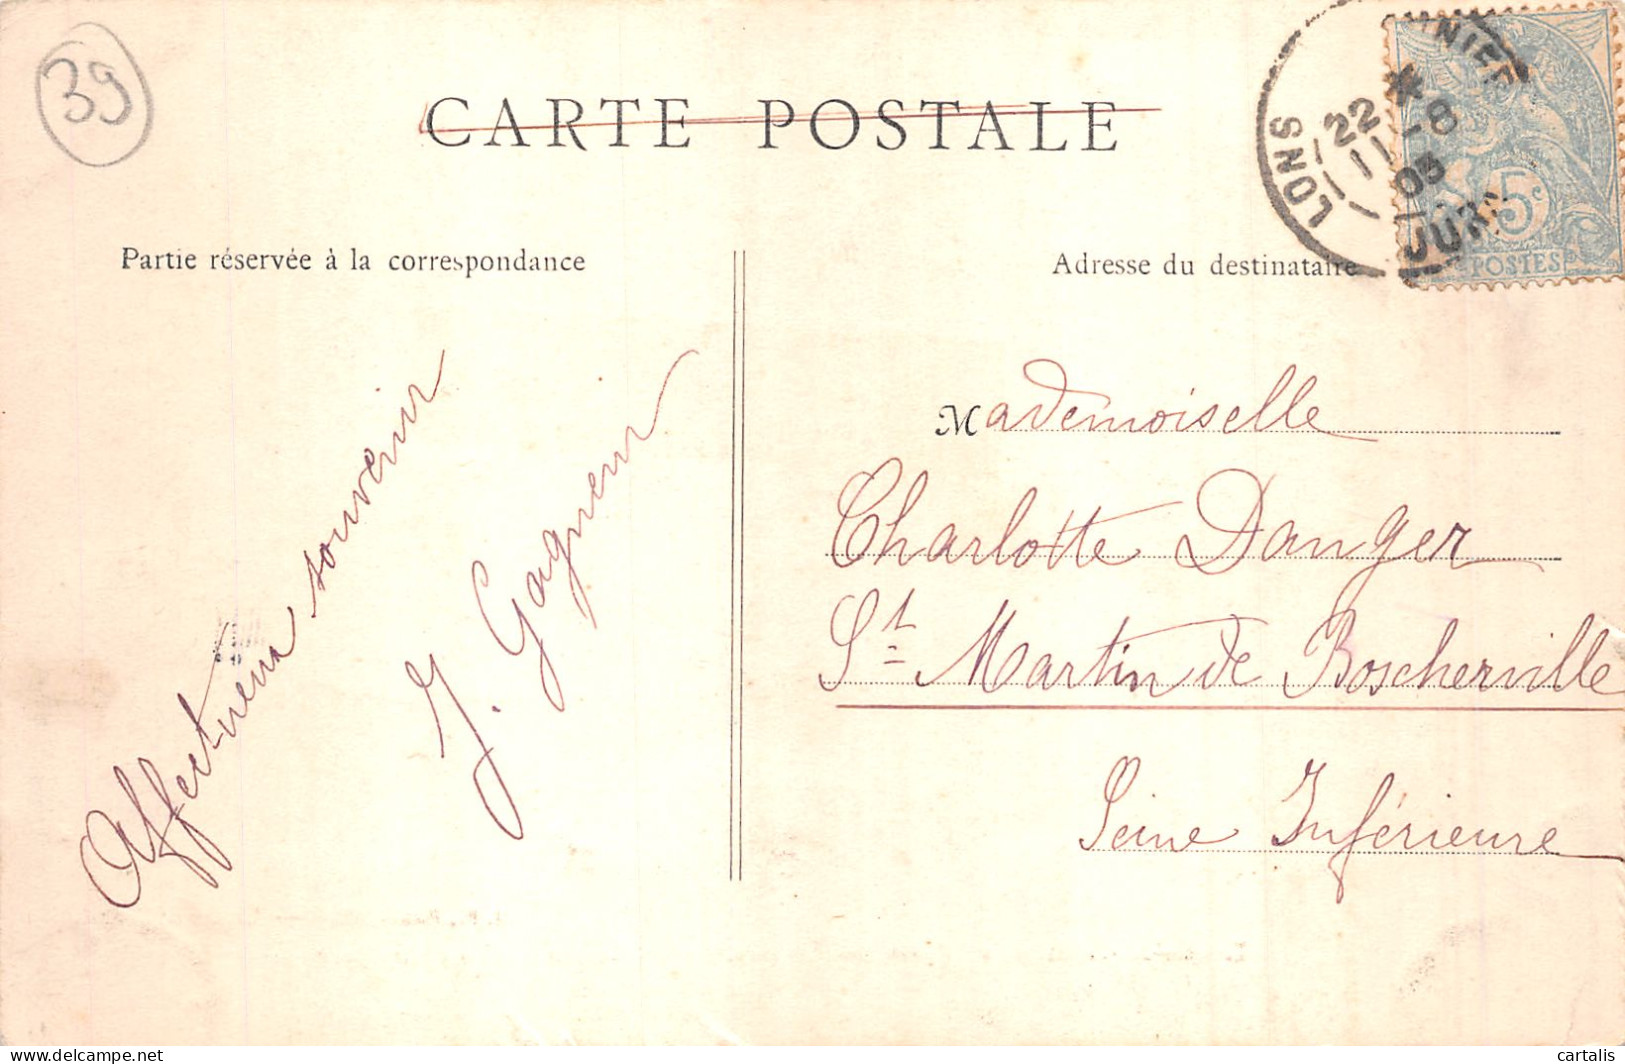 39
CARTE POSTALE
LONS
22 * 11 -8
05
JURA
5c
POSTES
Partie réservée à la correspondance
Adresse du destinataire
Affectueux souvenir
J. Gagneur
Mademoiselle
Charlotte Danger
St Martin de Boscherville
Seine Inférieure
delcampe.net
cartalis